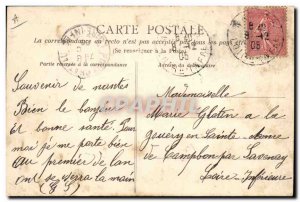 CARTE POSTALE
La correspondance au recto n'est pas acceptée par tous les pays étrangers
(Se renseigner à la Poste)
Partie réservée à la correspondance
Adresse du destinataire
Souvenir de nantes
Bien le bonjour
et bonne santé Pour
moi je me porte bien
au premier de lan
ont se serra la main
Mademoiselle
Marie Gloton a la
en Sainte-Anne
de Campbon par Savenay
Loire Inférieure